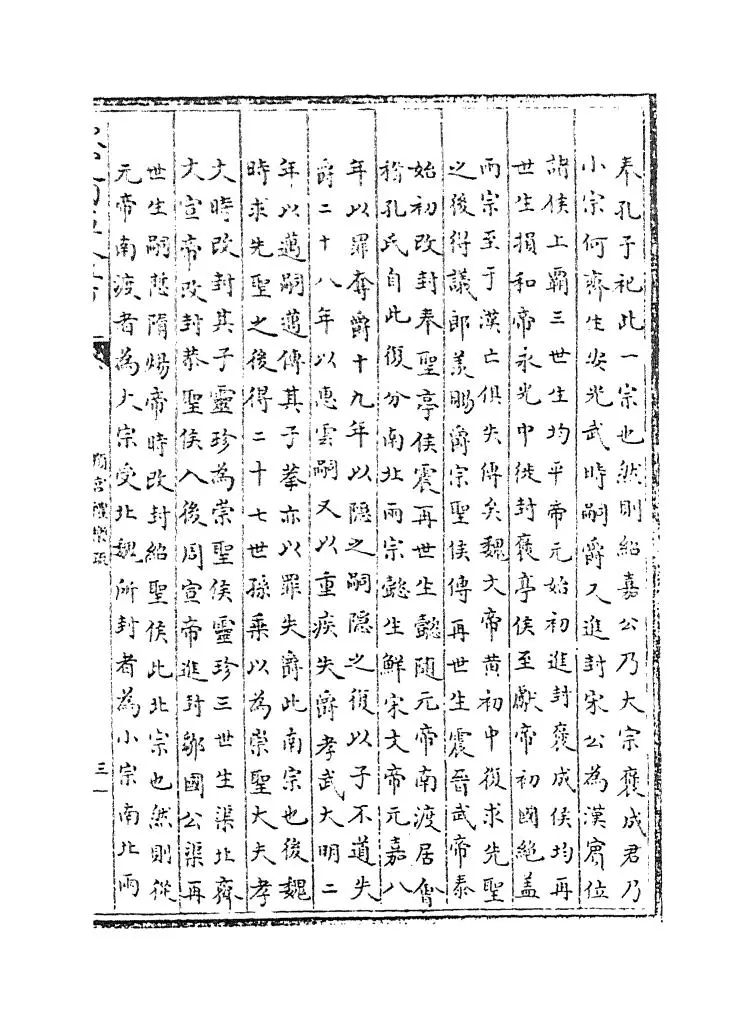 奉孔子祀此一宗也然則紹嘉公乃大宗褒成君乃
小宗何齊生安光武時嗣爵又進封宋公為漢賓位
諸侯上霸三世生均平帝元始初進封褒成侯均再
世生損和帝永光中徙封褒亭侯至獻帝初國絕蓋
兩宗至于漢亡俱失傳矣魏文帝黃初中復求先聖
之後得議郎羨賜爵宗聖侯傳再世生震晉武帝泰
始初改封奉聖亭侯震再世生懿隨元帝南渡居會
稽孔氏自此復分南北兩宗懿生鮮宋文帝元嘉八
年以罪奪爵十九年以隱之嗣隱之復以子不道失
爵二十八年以惠雲嗣又以重疾失爵孝武大明二
年以邁嗣邁傳其子葊亦以罪失爵此南宗也後魏
時求先聖之後得二十七世孫乘以為崇聖大夫孝
文時改封其子靈珍為崇聖侯靈珍三世生渠北齊
文宣帝改封恭聖侯入後周宣帝進封鄒國公渠再
世生嗣悊隋煬帝時改封紹聖侯此北宗也然則從
元帝南渡者為大宗受北魏所封者為小宗南北兩
頖宮禮樂疏
三一